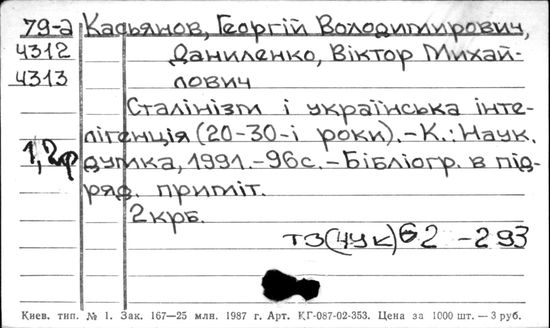 79-а Касьянов, Георгій Володимирович,
4312 Даниленко, Віктор Михай-
4313 лович
Сталінізм і українська інте-
лігенція (20-30-і роки).-К.: Наук.
1,2ф думка, 1991.-96с.-Бібліогр. в під-
ряд. приміт.
2крб.
Т3(4Ук)62 -293
Киев. тип. № 1. Зак. 167—25 млн. 1987 г. Арт. КГ-087-02-353. Цена за 1000 шт. — 3 руб.